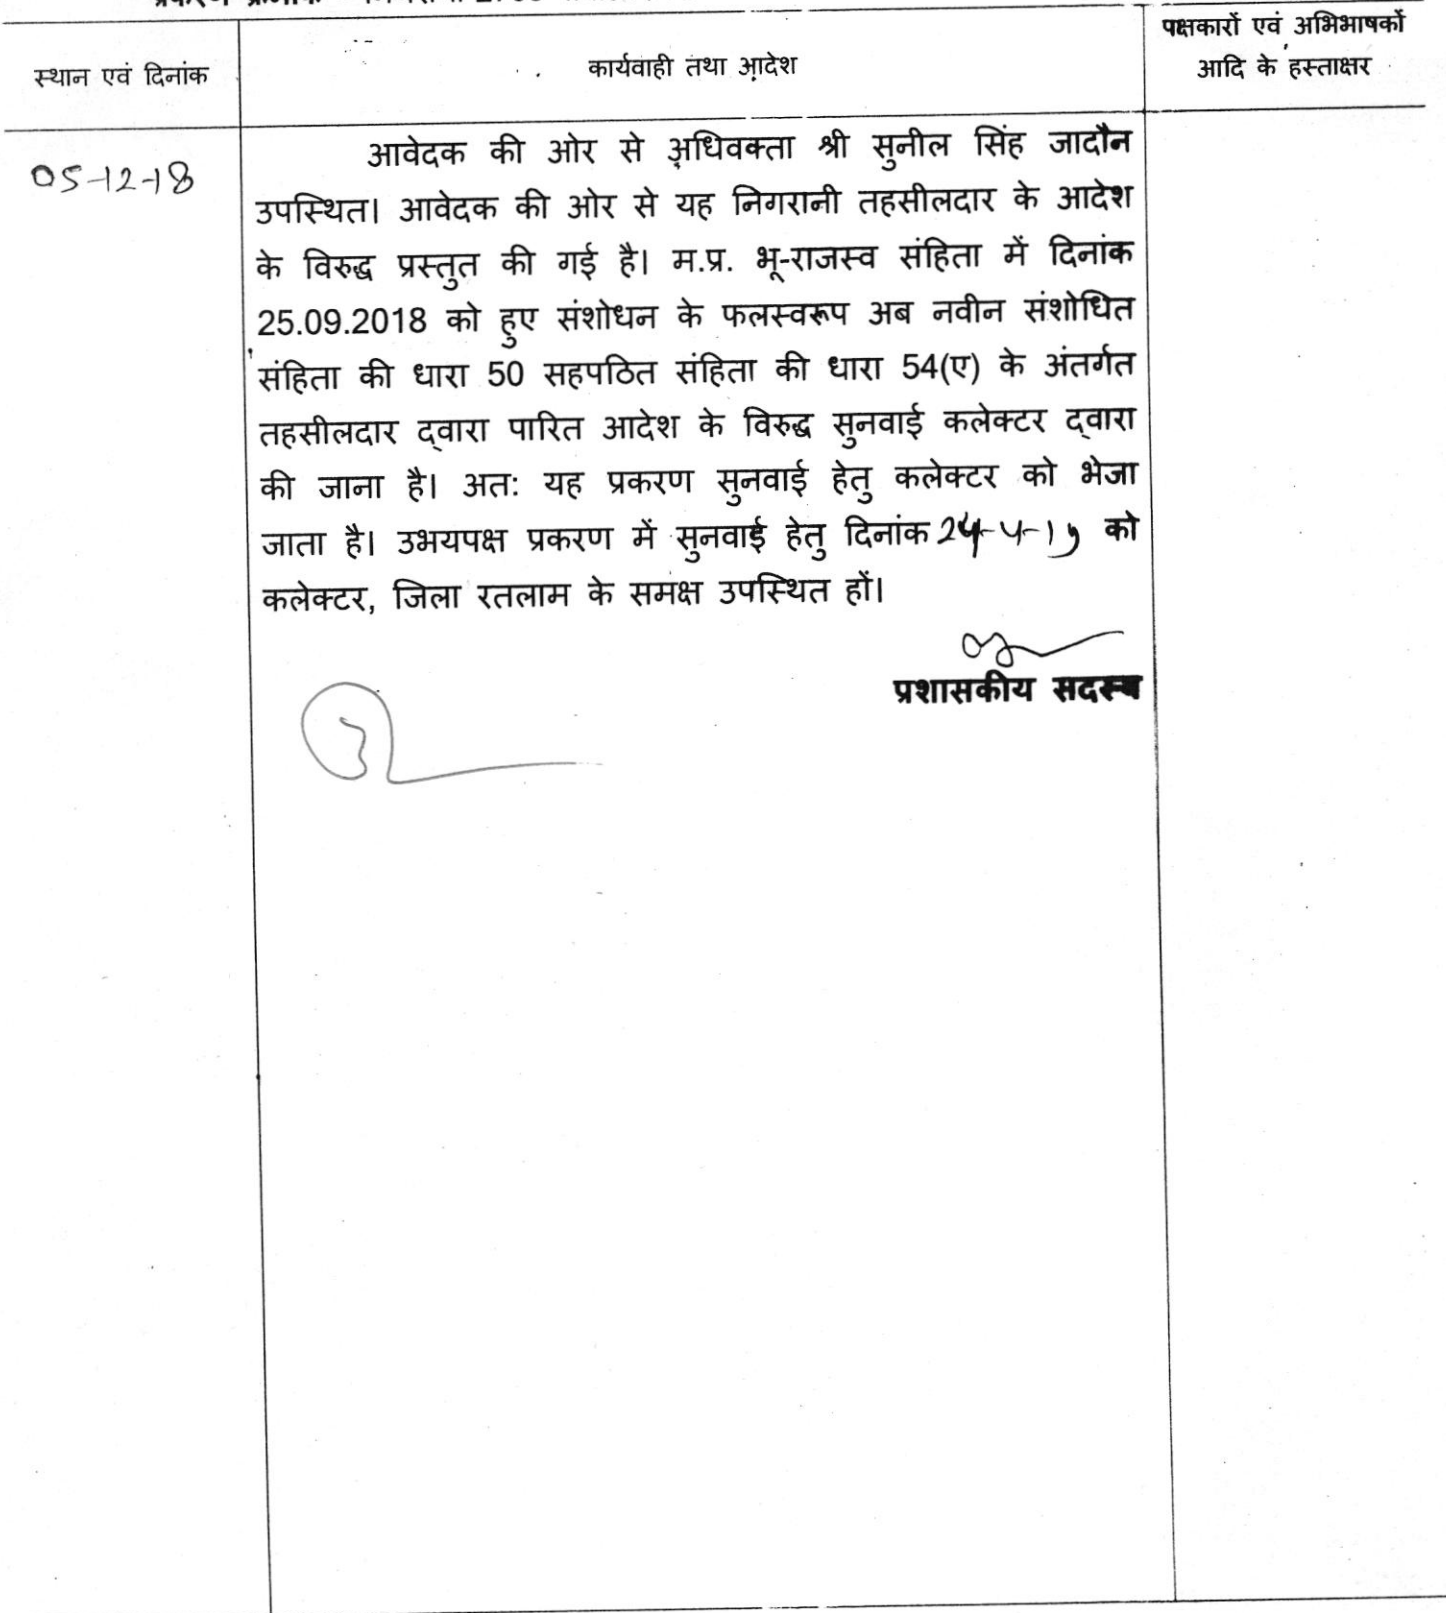 स्थान एवं दिनांक
कार्यवाही तथा आदेश
पक्षकारों एवं अभिभाषकों
आदि के हस्ताक्षर
05-12-18
आवेदक की ओर से अधिवक्ता श्री सुनील सिंह जादौन
उपस्थित। आवेदक की ओर से यह निगरानी तहसीलदार के आदेश
के विरुद्ध प्रस्तुत की गई है। म.प्र. भू-राजस्व संहिता में दिनांक
25.09.2018 को हुए संशोधन के फलस्वरूप अब नवीन संशोधित
संहिता की धारा 50 सहपठित संहिता की धारा 54(ए) के अंतर्गत
तहसीलदार द्वारा पारित आदेश के विरुद्ध सुनवाई कलेक्टर द्वारा
की जाना है। अतः यह प्रकरण सुनवाई हेतु कलेक्टर को भेजा
जाता है। उभयपक्ष प्रकरण में सुनवाई हेतु दिनांक को
कलेक्टर, जिला रतलाम के समक्ष उपस्थित हों।
प्रशासकीय सदस्य